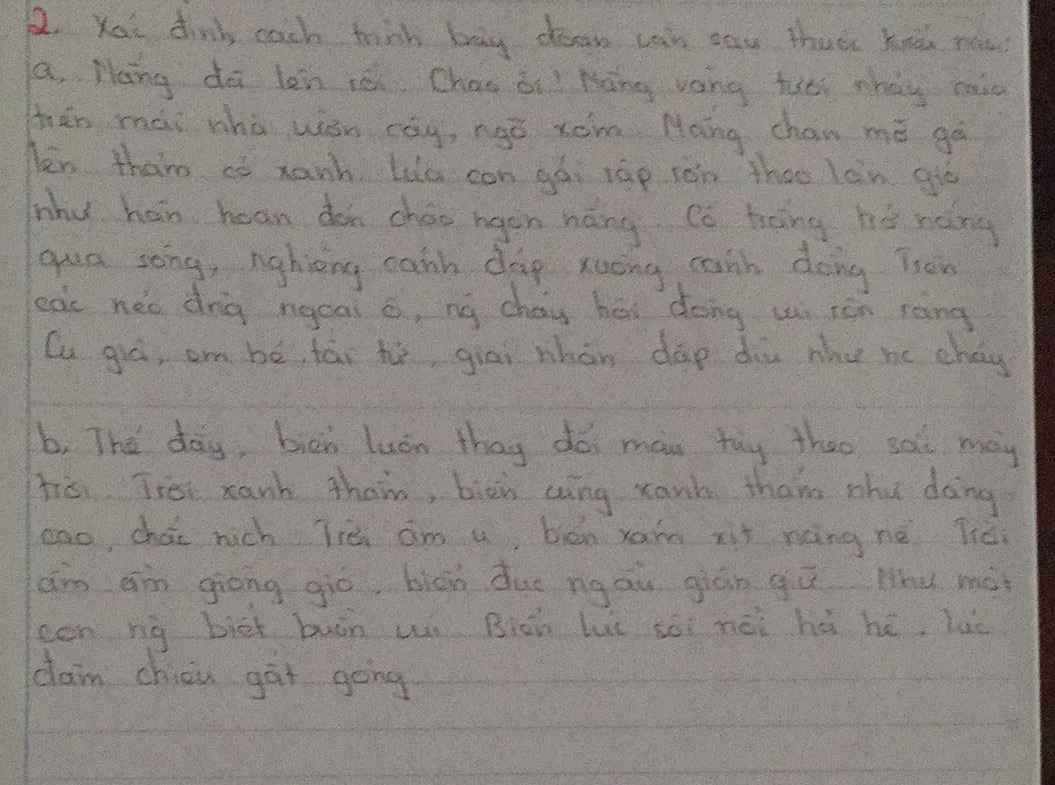 2. Xác định cách trình bày đoạn văn sau thuộc kiểu nào:
a. Nắng đã lên rồi. Chao ôi! Nắng vàng tươi nhảy múa
trên mái nhà vườn cây, ngõ xóm. Nắng chan mỡ gà
lên thảm cỏ xanh. Lúa con gái rập rờn theo làn gió
như hân hoan đón chào ngọn nắng. Cò trắng trở nắng
qua sông, nghiêng cánh đáp xuống cánh đồng. Trên
các nẻo đng ngoại ô, ng chảy hội đông vui rộn ràng
Cụ già, em bé, tài tử, giai nhân dập dìu như nc chảy
b, Thế đấy, biển luôn thay đổi màu tùy theo sắc mây
trời. Trời xanh thẳm, biển cũng xanh thẳm như dâng
cao, chắc nịch Trời âm u, biển xám xịt nặng nề Trời
ầm ầm giông gió, biển đục ngầu giận giữ. Như một
con ng biết buồn vui Biển lúc sôi nổi hả hê, lúc
đăm chiêu gắt gỏng